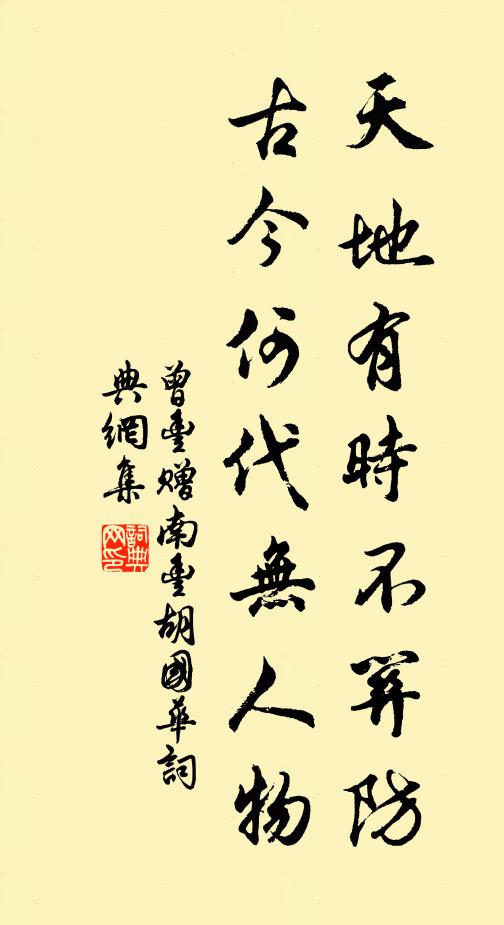 天地有時不關防
古今何代無人物
曾豐贈南豐胡國華詞
典網集
詞典网印